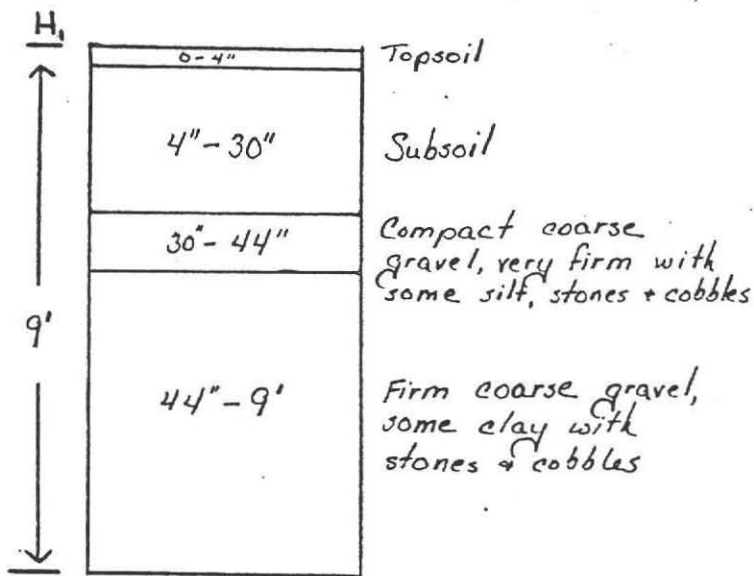 H₁
0-4" Topsoil
4"-30" Subsoil
30"-44" Compact coarse
gravel, very firm with
some silt, stones + cobbles
9'
44"-9' Firm coarse gravel,
some clay with
stones & cobbles